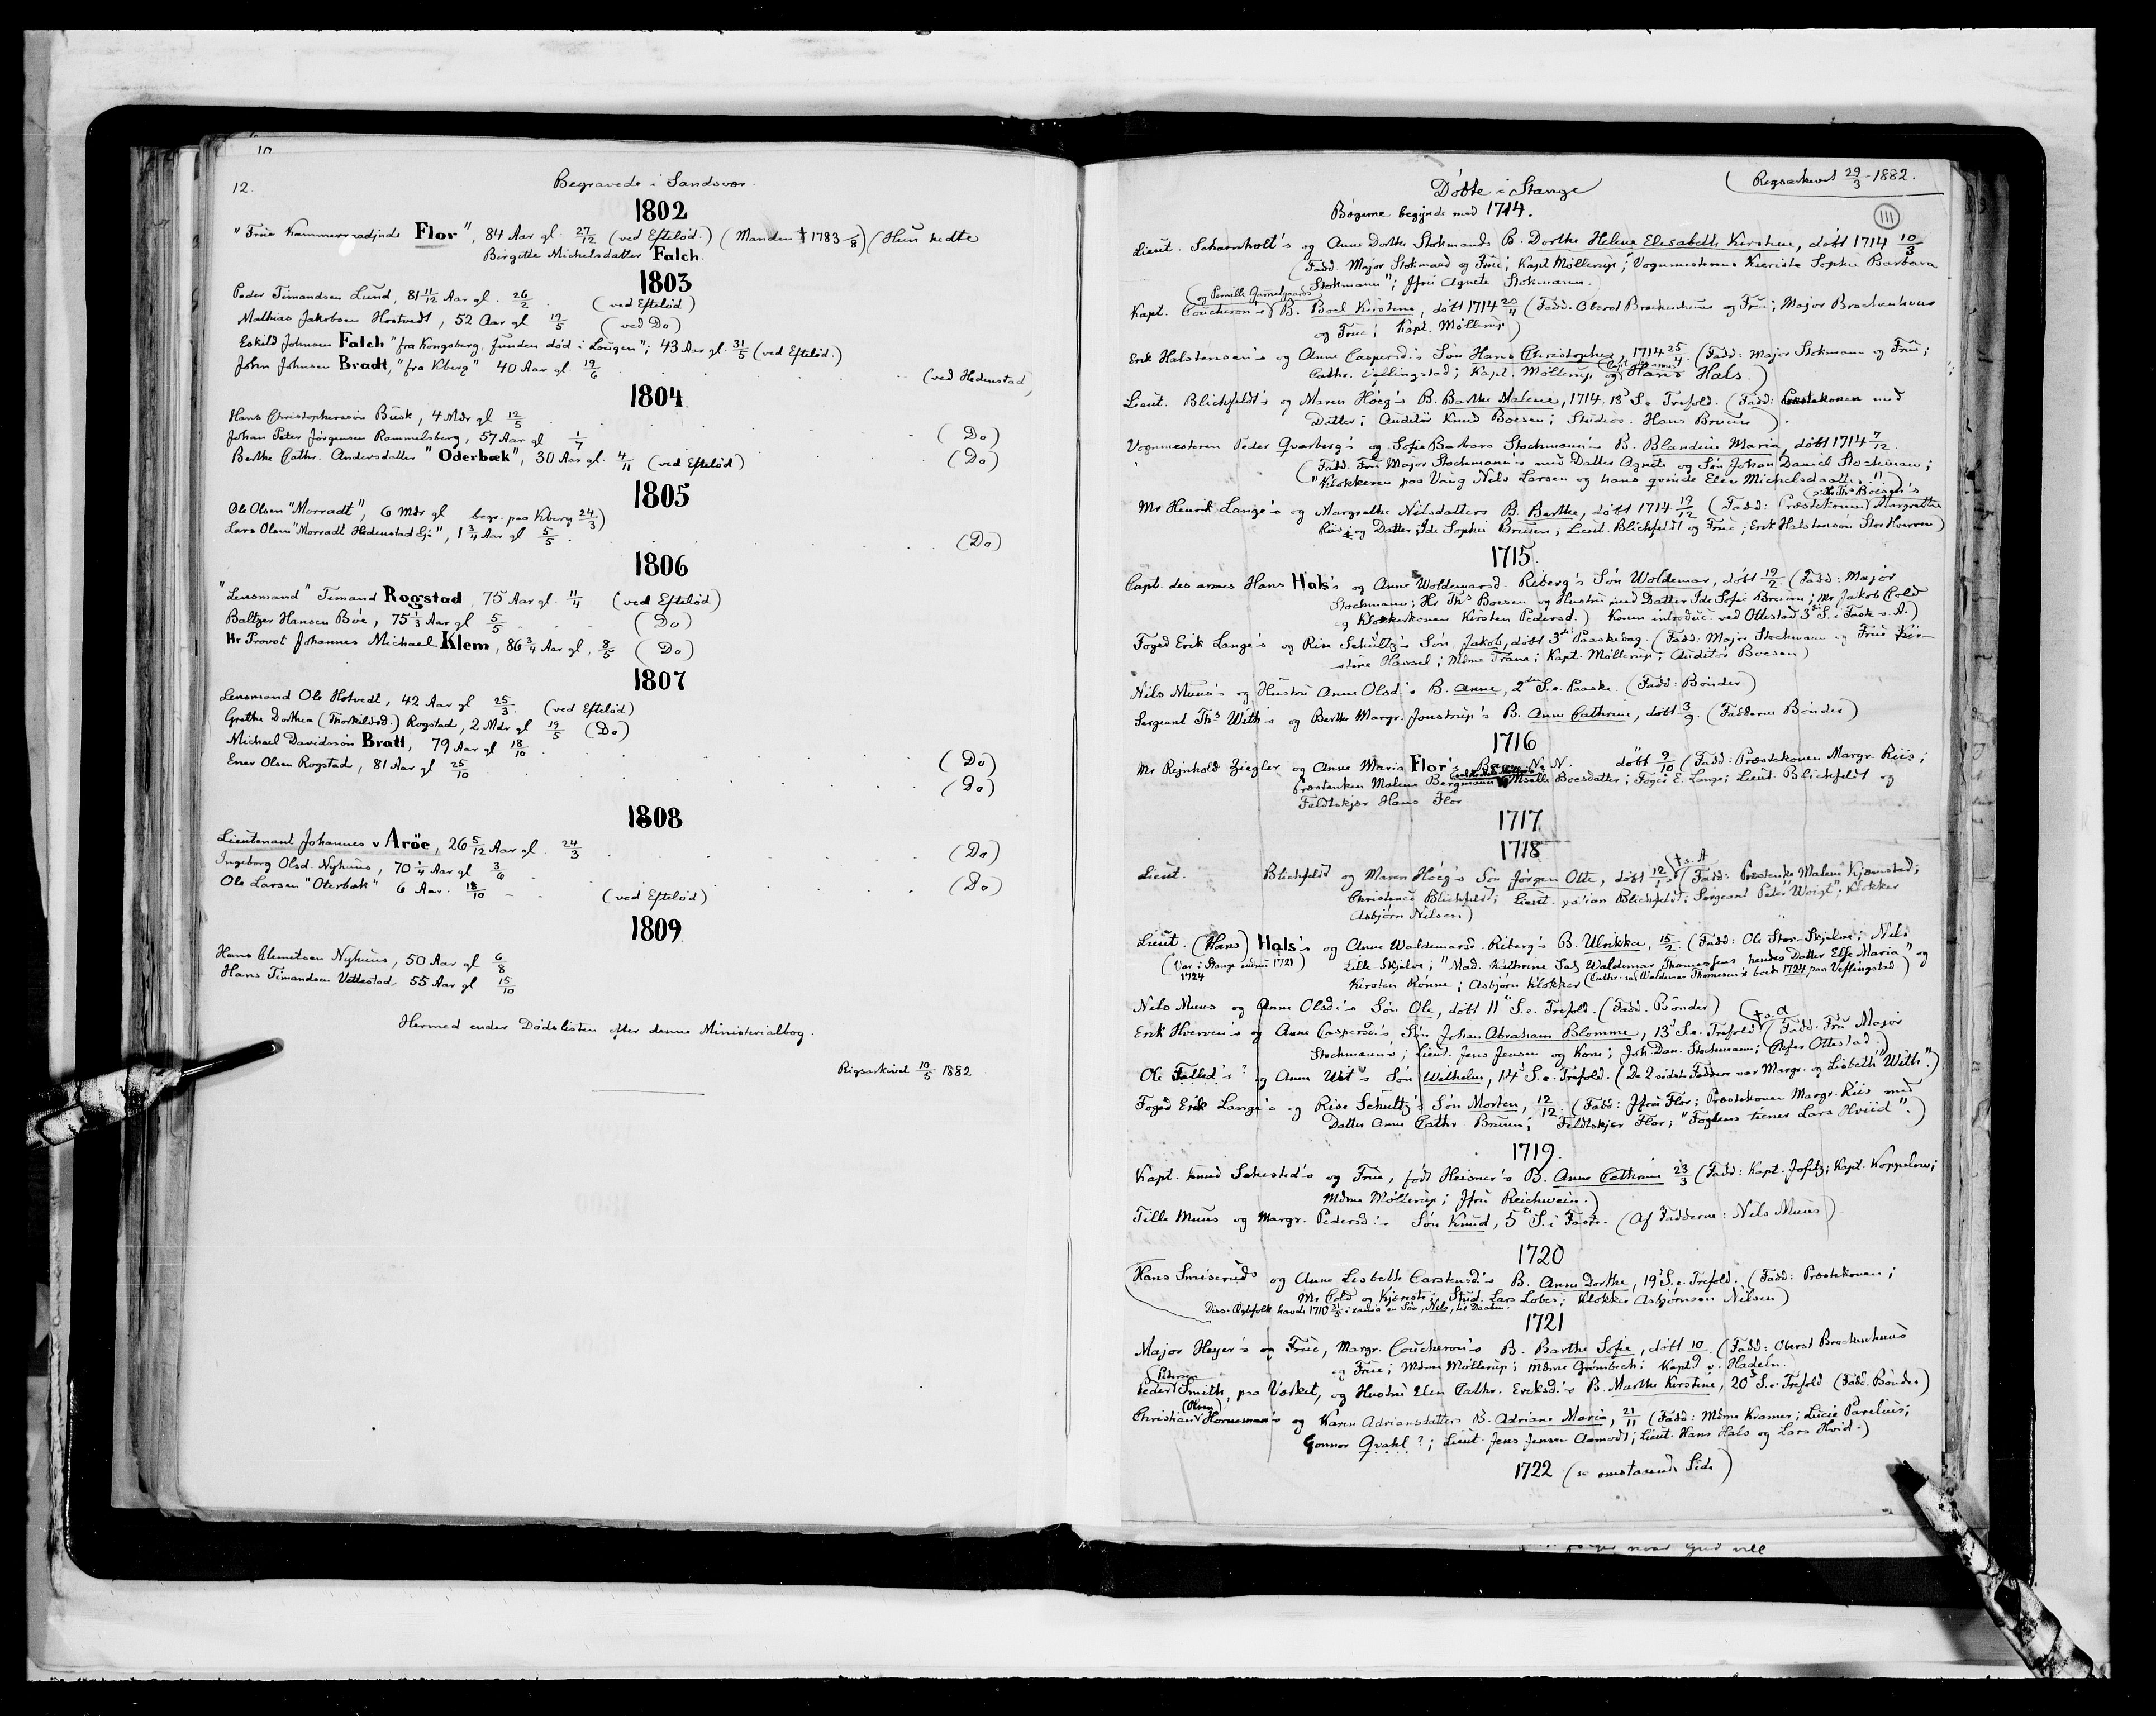 12.
Begravede i Sandsvær.
1802
"Frue Kammerraadinde Flor", 84 Aar gl. 27/12 (ved Efteløt.) (Manden † 1783 /8) (Hun hedte
Birgitte Michelsdatter Falch.
1803
Peder Timandsen Lund, 81 11/12 Aar gl. 26/2. (ved Efteløt)
Mathias Jakobsen Hostvedt, 52 Aar gl 19/5 (ved Do)
Eskild Johnsen Falch "fra Kongsberg, funden død i Lougen"; 43 Aar gl. 31/5 (ved Efteløt.)
John Johnsen Bradt, "fra Kberg" 40 Aar gl. 19/6 (ved Hedenstad)
1804
Hans Christophersøn Busk, 4 Mdr gl 12/5 (Do)
Johan Peter Jørgensen Rammelsberg, 57 Aar gl 1/7 (Do)
Berthe Cathr. Andersdatter "Oderbæk", 30 Aar gl. 4/11 (ved Efteløt)
1805
Ole Olsen "Morradt", 6 Mdr gl begr. paa Kberg 24/3)
Lars Olsen "Morradt Hedenstad Eje", 1 3/4 Aar gl 5/5 (Do)
1806
"Lensmand" Timand Rogstad, 75 Aar gl. 11/4 (ved Efteløt)
Baltzer Hansen Bøe, 75 1/3 Aar gl 5/5 (Do)
Hr Provst Johannes Michael Klem, 86 3/4 Aar gl, 8/5 (Do)
1807
Lensmand Ole Hotvedt, 42 Aar gl 25/3. (ved Efteløt)
Grethe Dorthea (Thorkildsd.) Rogstad, 2 Mdr gl 19/5 (Do)
Michael Davidssøn Bratt, 79 Aar gl 18/10 (Do)
Ener Olsen Rogstad, 81 Aar gl 25/10 (Do)
1808
Lieutenant Johannes v Aröe, 26 5/12 Aar gl. 24/3 (Do)
Ingeborg Olsd. Nyhuus, 70 1/4 Aar gl 3/6 (Do)
Ole Larsen "Oterbæk" 6 Aar. 18/10 (ved Efteløt)
1809
Hans Clemetsen Nyhuus, 50 Aar gl 6/8
Hans Timandsen Vettestad, 55 Aar gl 15/10
Hermed ender Dødslisten efter denne Ministerialbog.
Rigsarkivet 10/5 1882
Døbte i Stange
Rigsarkivet 29/3-1882.
Bøgerne begynde med 1714.
III
Lieut. Scharnholt's og Anne Dorthe Stokmands B. Dorthe Helene Elisabeth Kirstine, døbt 1714 10/3
(Fadd. Major Stokmand og Frue; Kapt Møllerup; "Vognmesterens Kieriste Sophie Barbara
Stokmann"; Jfru Agnete Stokmann.
(og Pernille Gamelgaards)
Kapt. Coucheron's B. Boel Kirstine, døbt 1714 20/4 (Fadd. Oberst Brockenhuus og Frue; Major Brockenhuus
og Frue; Kapt. Møllerup)
Erik Halstensøn's og Anne Caspersd.'s Søn Hans Christopher, 1714 25/4. (Fadd: Major Stokmann og Frue;
Cathr. Veflingstad; Kapt. Møllerup og (Capt. des armes) Hans Hals.)
Lieut. Blichfeldt's og Maren Høeg's B. Barthe Malene, 1714, 13 S. e. Trefold. (Fadd: Præstekonen med
Datter; Auditør Knud Boesen; Studios. Hans Bruun)
Vognmesteren Peder Qvarberg's og Sofie Barbara Stochmann's B. Blandine Maria, døbt 1714 7/12.
(Fadd. Frue Major Stochmann's med Datter Agnete og Søn Johan Daniel Stochman;
"Klokkeren paa Vang Nels Larsen og hans qvinde Elen Michelsdaatt.")
(Hr Ths Boesen's
Mr Henrik Lange's og Margrethe Nilsdatters B. Berthe, døbt 1714 19/12 (Fadd: Præstekonen Margrethe
Riis og Datter Ide Sophie Bruun; Lieut. Blichfeldt og Frue; Erik Halstensøn Stor Hverven)
1715
Capt. des armes Hans Hals's og Anne Woldemarsd. Riberg's Søn Woldemar, døbt 19/2. (Fadd: Major
Stochmann; Hr Ths Boesen og Hustru med Datter Ide Sofie Bruun; Mr Jakob Cold
og Klokkerkonen Kirsten Pedersd.) Konen introduc. ved Ottestad 3 S. i Faste s. A.)
Foged Erik Lange's og Rise Schultz's Søn Jakob, døbt 3die Paaskedag. (Fadd: Major Stochmann og Frue Kir-
stine Hansel; Mdme Trane; Kapt. Møllerup; Auditør Boesen)
Nils Muus's og Hustru Anne Olsd.'s B. Anne, 2den S. e. Paaske. (Fadd: Bønder)
Sergeant Ths With's og Berthe Margr. Jonstrup's B. Anne Cathrine, døbt 3/9. (Fadderne Bønder)
1716
Mr Rejnhold Ziegler og Anne Maria Flor's B. N. N. døbt 9/10 (Fadd: Præstekonen Margr. Riis;
Præstenken Malene Bergmann Mselle Boesdatter; Foged E. Lange; Lieut. Blichfeldt og
Feldtskjær Hans Flor
1717
1718
Lieut. Blichfeldt og Maren Høeg's Søn Jørgen Otte, døbt 12/1 († s. A) (Fadd: Præstenke Malene Kjærnstad;
Christence Blichfeldt; Lieut. Xstian Blichfeldt; Sergeant Peter "Woigt"; Klokker
Asbjørn Nilsen)
Lieut. (Hans) Hals's og Anne Waldemarsd. Riberg's B. Ulrikka, 15/2. (Fadd: Ole Stor-Skjelve; Nils
(Var i Stange endnu 1721) Lille Skjelve; "Mad. Kathrine Sal. Waldemar Thomessens hendes Datter Else Maria" og
1724 Kirsten Rønne; Asbjørn Klokker (Cathr. sal. Waldemar Thomesen's boede 1724 paa Veflingstad.)
Nels Muus og Anne Olsd.'s Søn Ole, døbt 11 S. e. Trefold. (Fadd. Bønder)
Erik Hverven's og Anne Caspersd.'s Søn Johan Abraham Blomme, 13 S. e. Trefold. († s. A) (Fadd. Frue Major
Stochmann's; Lieut. Jens Jensen og Kone; Joh. Dan. Stochmann; Chfer Ottestad.)
Ole Felled's? og Anne Wit's Søn Wilhelm, 14 S. e. Trefold. (De 2 sidste Faddere var Margr. og Lisbeth "With".)
Foged Erik Lange's og Rise Schultz's Søn Morten, 12/12. (Fadd: Jfru Flor; Præstekonen Margr. Riis med
Datter Anne Cathr Bruun; Feldtskjær Flor; "Fogdens tiener Lars Hviid".)
1719.
Kapt. Knud Sehested's og Frue, født Heisner's B. Anne Cathrine 23/3 (Fadd: Kapt. Jofitz; Kapt. Koppelow;
Mdme Møllerup; Jfru Reichwein.)
Tille Muus og Margr. Pedersd.'s Søn Knud, 5 S. i Faste. (Af Fadderne: Nils Muus)
1720
Hans Smiserud's og Anne Lisbeth Carstensd.'s B. Anne Dorthe, 19 S. e. Trefold. (Fadd: Præstekonen;
Mr Cold og Kjæreste; Stud. Lars Lobes; Klokker Asbjørnsen Nilsen)
Disse Ægtefolk havde 1710 31/5 i Xania en Søn, Nils, til Daaben.
1721
Major Heyer's og Frue, Margr. Coucheron's B. Barthe Sofie, døbt 10. (Fadd: Oberst Brockenhuus
og Frue; Mdme Møllerup; Mdme Grønbech; Kapt. v. Hadeln.
Peder (Pedersen) Smith, paa Værket, og Hustru Elen Cathr. Eriksd.'s B. Marthe Kirstine, 20 S. e. Trefold (Fadd. Bønder)
Christian (Olsen) Horneman's og Karen Adriansdatters B. Adriane Maria, 21/11 (Fadd: Mdme Kramer; Lucie Parelius;
Gonnor Qvahl?; Lieut. Jens Jensen Aamodt; Lieut. Hans Hals og Lars Hvid.)
1722 (se omstaaende Side)